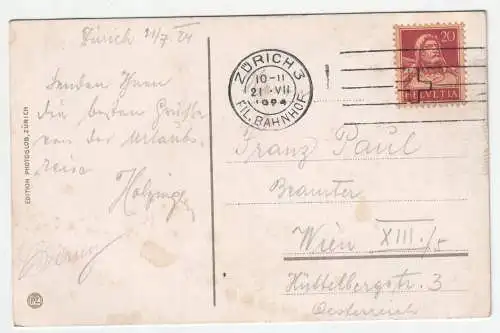 Zürich 21/7.24
Senden Ihnen
die besten Grüße
von der Urlaubs-
reise
Holzinger
EDITION PHOTOGLOB, ZÜRICH
PZ
ZÜRICH 3
10-11
21.VII
1924
FIL. BAHNHOF
20
HELVETIA
Franz Paul
Beamter
Wien XIII/5
Hüttelbergstr. 3
Oesterreich